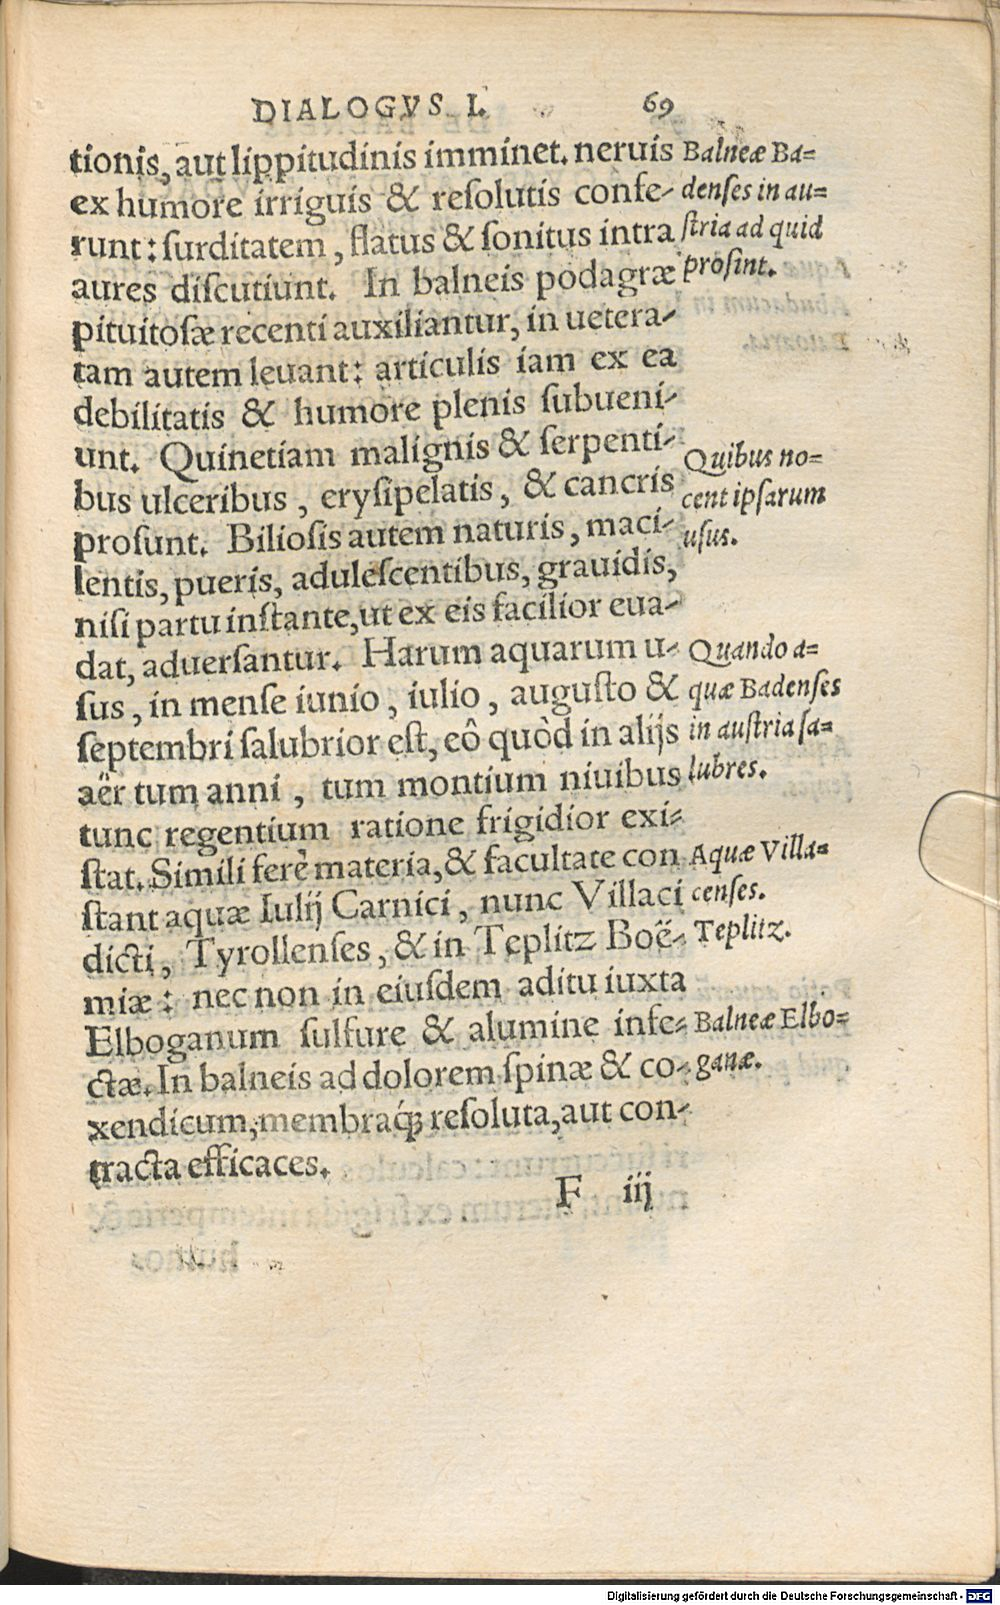 DIALOGVS I. 69
tionis, aut lippitudinis imminet. neruis
ex humore irriguis & resolutis confe-
runt: surditatem, flatus & sonitus intra
aures discutiunt. In balneis podagræ
pituitosæ recenti auxiliantur, in uetera-
tam autem leuant: articulis iam ex ea
debilitatis & humore plenis subueni-
unt. Quinetiam malignis & serpenti-
bus ulceribus, erysipelatis, & cancris
prosunt. Biliosis autem naturis, maci-
lentis, pueris, adulescentibus, grauidis,
nisi partu instante, ut ex eis facilior eua-
dat, aduersantur. Harum aquarum u-
sus, in mense iunio, iulio, augusto &
septembri salubrior est, eô quòd in alijs
aër tum anni, tum montium niuibus
tunc regentium ratione frigidior exi-
stat. Simili ferè materia, & facultate con
stant aquæ Iulij Carnici, nunc Villaci
dicti, Tyrollenses, & in Teplitz Boë-
miæ: nec non in eiusdem aditu iuxta
Elboganum sulfure & alumine infe-
ctæ. In balneis ad dolorem spinæ & co-
xendicum, membraq́; resoluta, aut con-
tracta efficaces.
F iij
Balneæ Ba=
denses in au=
stria ad quid
prosint.
Quibus no=
cent ipsarum
usus.
Quando a=
quæ Badenses
in austria sa=
lubres.
Aquæ Villa=
censes.
Teplitz.
Balneæ Elbo=
ganæ.
Digitalisierung gefördert durch die Deutsche Forschungsgemeinschaft - DFG